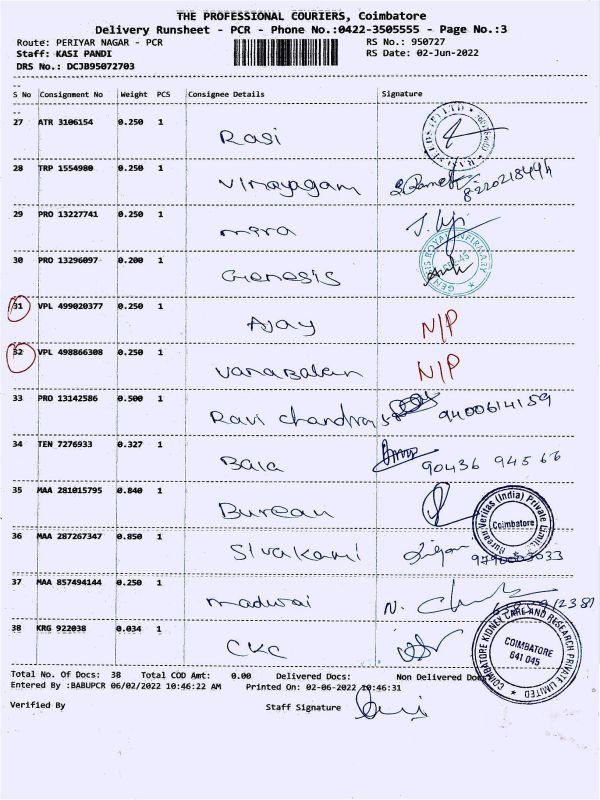 THE PROFESSIONAL COURIERS, Coimbatore
Delivery Runsheet - PCR - Phone No.:0422-3505555 - Page No.:3
Route: PERIYAR NAGAR - PCR RS No.: 950727
Staff: KASI PANDI RS Date: 02-Jun-2022
DRS No.: DCJB95072703
S No Consignment No Weight PCS Consignee Details Signature
27 ATR 3106154 0.250 1
Rasi
28 TRP 1554980 0.250 1
Vinayagam
29 PRO 13227741 0.250 1
mira
30 PRO 13296097 0.200 1
Genesis
GENESIS ROYAL INFIRMARY
31 VPL 499020377 0.250 1
Ajay N/P
32 VPL 498866308 0.250 1
N/P
33 PRO 13142586 0.500 1
Ravi Chandra 9400614159
34 TEN 7276933 0.327 1
Bala 90436 94566
35 MAA 281015795 0.840 1
Bureau
Bureau Veritas (India) Private Limited
Coimbatore
36 MAA 287267347 0.850 1
Sivakami
37 MAA 857494144 0.250 1
38 KRG 922038 0.034 1
CKC
COIMBATORE KIDNEY CARE AND RESEARCH PRIVATE LIMITED
COIMBATORE
641 045
Total No. Of Docs: 38 Total COD Amt: 0.00 Delivered Docs: Non Delivered Doc
Entered By :BABUPCR 06/02/2022 10:46:22 AM Printed On: 02-06-2022 10:46:31
Verified By Staff Signature